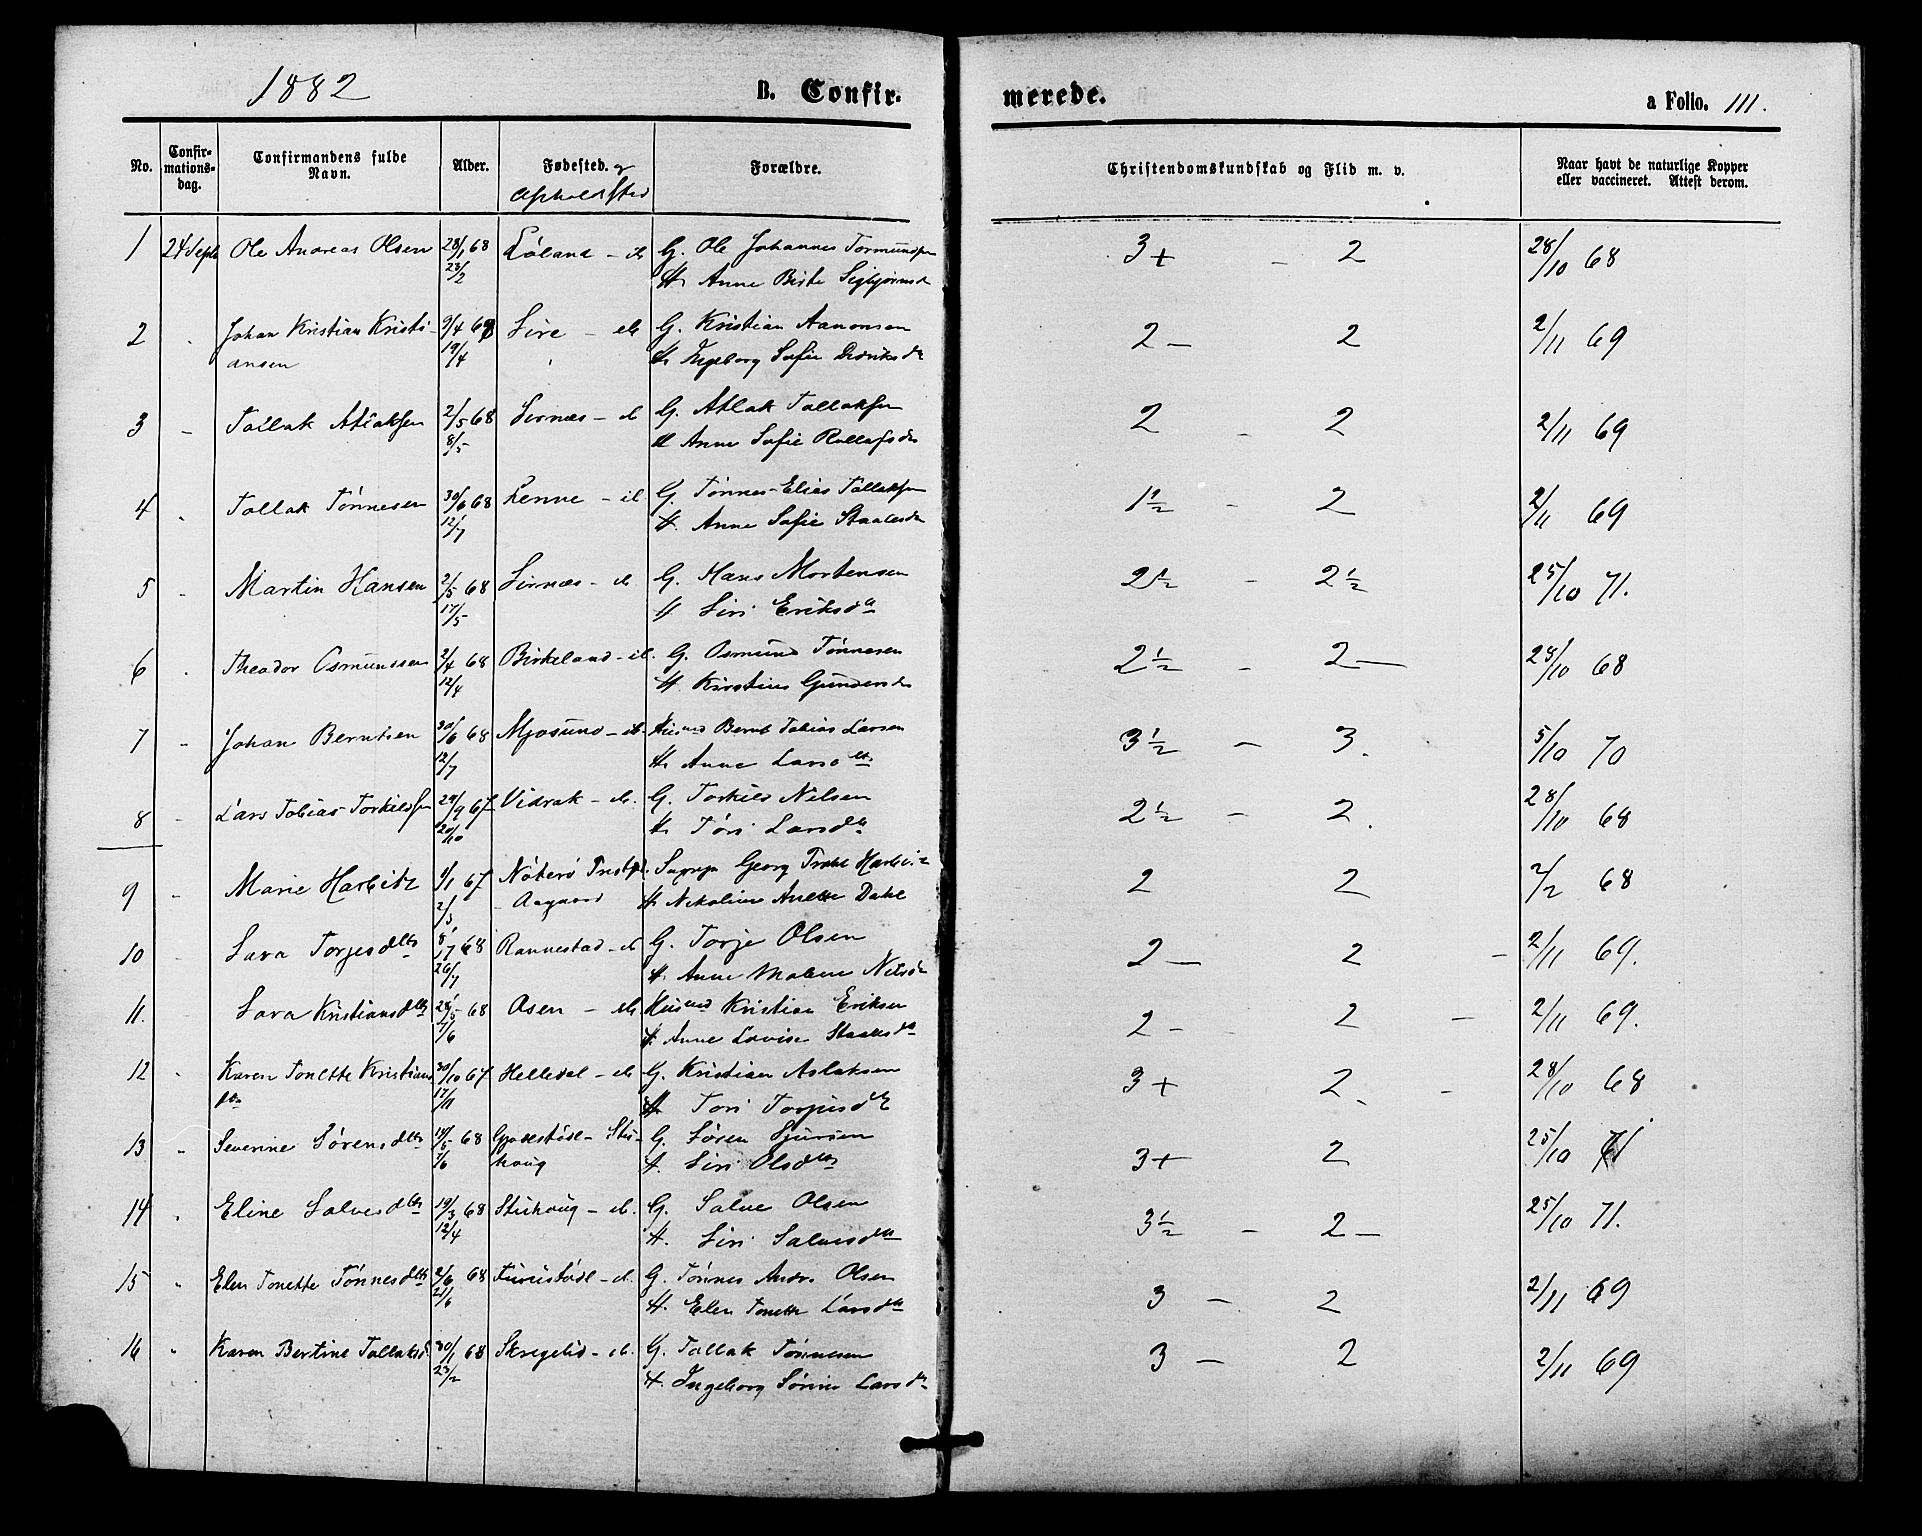 1882 B. Confir- merede. a Folio. 111.
No. Confirmations-dag. Confirmandens fulde Navn. Alder. Fødested. og Opholdsted Forældre. Christendomskundskab og Flid m. v. Naar havt de naturlige Kopper eller vaccineret. Attest derom.
1 24 Septb Ole Andreas Olsen 28/1 68 Løland - G. Ole Johannes Tormundsen 3+ - 2 28/10 68
23/2 H. Anne Birte Sigbjørnsd
2 Johan Kristian Kristi- 9/4 68 Sire - G. Kristian Aanonsen 2- 2 2/11 69
ansen 19/4 H. Ingeborg Sofie
3 - Tallak Atlaksen 2/5 68 Sirnæs - G. Atlak Tallaksen 2 - 2 2/11 69
8/5 H Anne Sofie
4 Tallak Tønnesen 30/6 68 Lenne - G. Tønnes Elias Tallaksen 1½ - 2 2/11 69
12/7 H. Anne Sofie Staalesdr
5 - Martin Hansen 2/5 68 Sirnæs - G. Hans Mortensen 2½ - 2½ 25/10 71.
17/5 H Siri Eriksdtr
6 Theodor Osmundssen 2/4 68 Birkeland - G. Osmund Tønnesen 2½ - 2- 28/10 68
12/4 H. Kirstine Gundersdr
7 " Johan Berntsen 30/6 68 Mjosund - Husmd Bernt Tobias Larsen 3½ - 3. 5/10 70
12/7 H. Anne Larsdtr
8 - Lars Tobias Torkildsen 29/9 67 Vidrak - G. Torkild Nilsen 2½ - 2. 28/10 68
20/10 H. Tóri Larsdtr
9 - Marie Harbitz 67 Nøterø Georg Harbitz 2 2 68
2/3 Aagaard H. Nikoline Anette Dahl
10 Sara Torjesdtr 8/7 68 Rannestad - G. Torje Olsen 2- 2 - 2/11 69.
26/7 H. Anne Malene Nilsdr
11. Sara Kristiansdtr 28/5 68 Osen - Husmd Kristian Eriksen 2- 2 - 2/11 69.
7/6 H. Anne Lovise Staalesdtr
12 " Karen Tonette Kristians 30/10 67 Helledal - G. Kristian Aslaksen 3+ 2- - 28/10 68
dtr 17/11 H. Tori Torjusdtr
13 " Severine Sørensdtr 14/5 68 - Stu- G. Søren Sjursen 3+ 2 25/10 71
7/6 houg H. Siri Olsdtr
14 " Eline Salvesdtr 19/3 68 Stuhoug - G. Salve Olsen 3½ - 2- 25/10 71.
12/4 H. Siri Salvesdtr
15 " Elen Tonette Tønnesdtr 2/6 68 Furustødl - G. Tønnes Andrs Olsen 3 - 2 2/11 69
21/6 H. Elen Tonette Larsdtr
16 " Karen Bertine Tallaksd 30/1 68 Skregelid - G. Tallak Tønnesen 3 - 2 2/11 69
23/2 H. Ingeborg Sørine Larsdtr